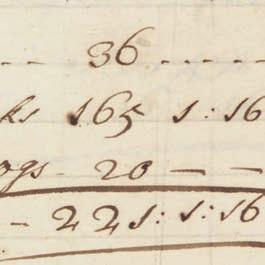 -- 36 -----
ks 165 1:16
ogs - 20 — —
- 221:1:16